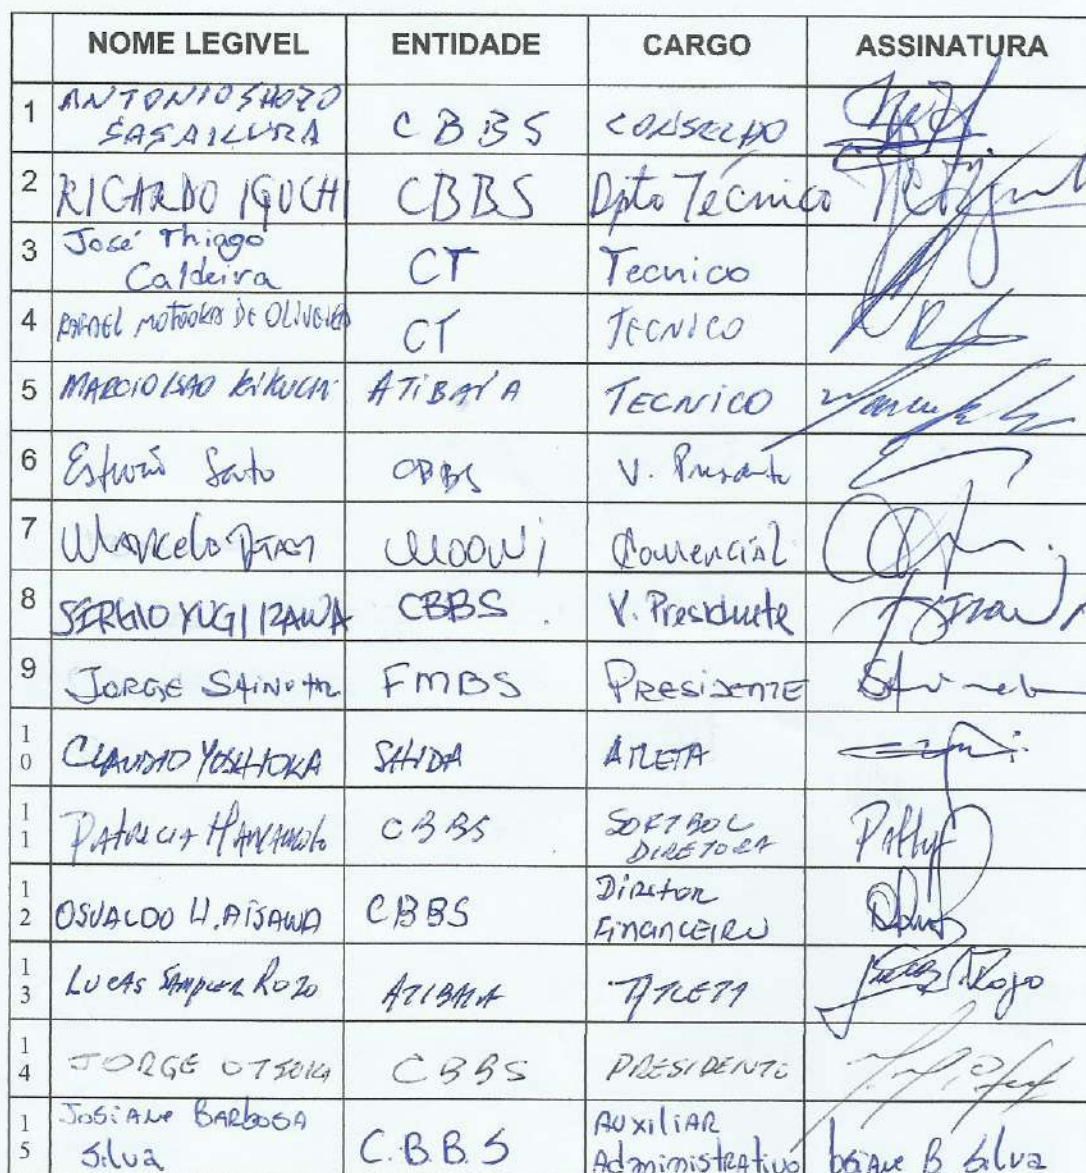 NOME LEGIVEL ENTIDADE CARGO ASSINATURA
1 ANTONIO SHOZO
SASAKURA CBBS CONSELHO
2 RICARDO IGUCHI CBBS Dpto Técnico
3 José Thiago
Caldeira CT Tecnico
4 RAFAEL MOTOOKA DE OLIVEIRA CT TECNICO
5 MARCIO ISAO KIKUCHI ATIBAIA TECNICO
6 Sato CBBS V. Presidente
7 Marcelo Comercial
8 SERGIO YUGI IZAWA CBBS V. Presidente
9 JORGE FMBS PRESIDENTE
10 CLAUDIO YOSHIOKA ATLETA
11 PATRICIA CBBS SOFTBOL
DIRETORA Patty
12 OSVALDO H. AISAWA CBBS Diretor
Financeiro
13 LUCAS ROJO ATIBAIA ATLETA Lucas Rojo
14 JORGE OTSUKA CBBS PRESIDENTE
15 JOSiANe BARbOSA
Silva C.B.B.S AUXiliAR
Administrativo B. Silva